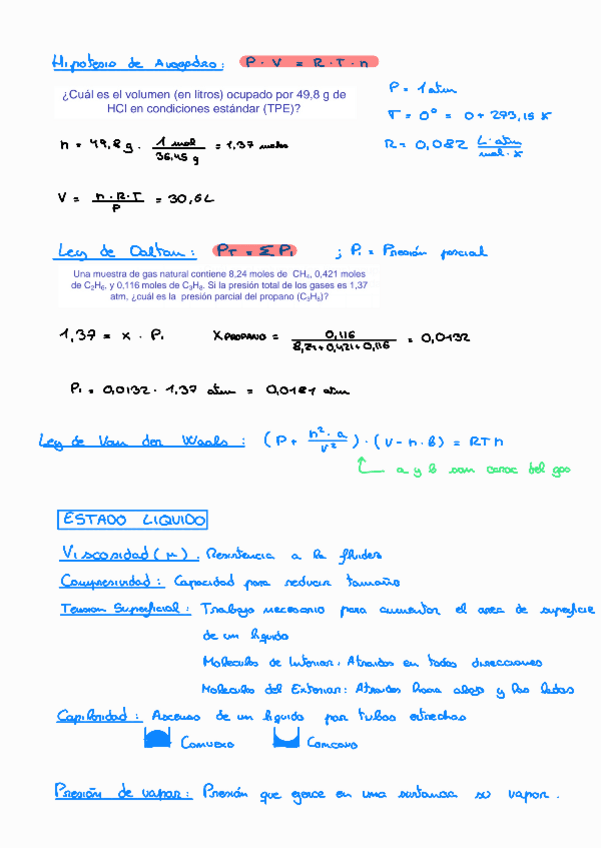 Hipotesis de Avogadro: P · V = R · T · n
¿Cuál es el volumen (en litros) ocupado por 49,8 g de
HCl en condiciones estándar (TPE)?
P = 1 atm
T = 0° = 0 + 273,15 K
R = 0,082 L·atm / mol·K
n = 49,8 g · 1 mol / 36,45 g = 1,37 moles
V = n·R·T / P = 30,6 L
Ley de Dalton: PT = Σ Pi ; Pi = Presión parcial
Una muestra de gas natural contiene 8,24 moles de CH₄, 0,421 moles
de C₂H₆, y 0,116 moles de C₃H₈. Si la presión total de los gases es 1,37
atm, ¿cuál es la presión parcial del propano (C₃H₈)?
1,37 = x · Pi XPROPANO = 0,116 / 8,24+0,421+0,116 = 0,0132
Pi = 0,0132 · 1,37 atm = 0,0181 atm
Ley de Van der Waals: (P + n²·a / V²) · (V - n·b) = RTn
a y b son carac del gas
ESTADO LIQUIDO
Viscosidad (μ): Resistencia a la fluidez
Compresividad: Capacidad para reducir tamaño
Tension Superficial: Trabajo necesario para aumentar el area de superficie
de un liquido
Moleculas de Interior: Atraidas en todas direcciones
Moleculas del Exterior: Atraidas hacia abajo y los lados
Capilaridad: Ascenso de un liquido por tubos estrechos
Convexo Concavo
Presión de vapor: Presión que ejerce en una sustancia su vapor.